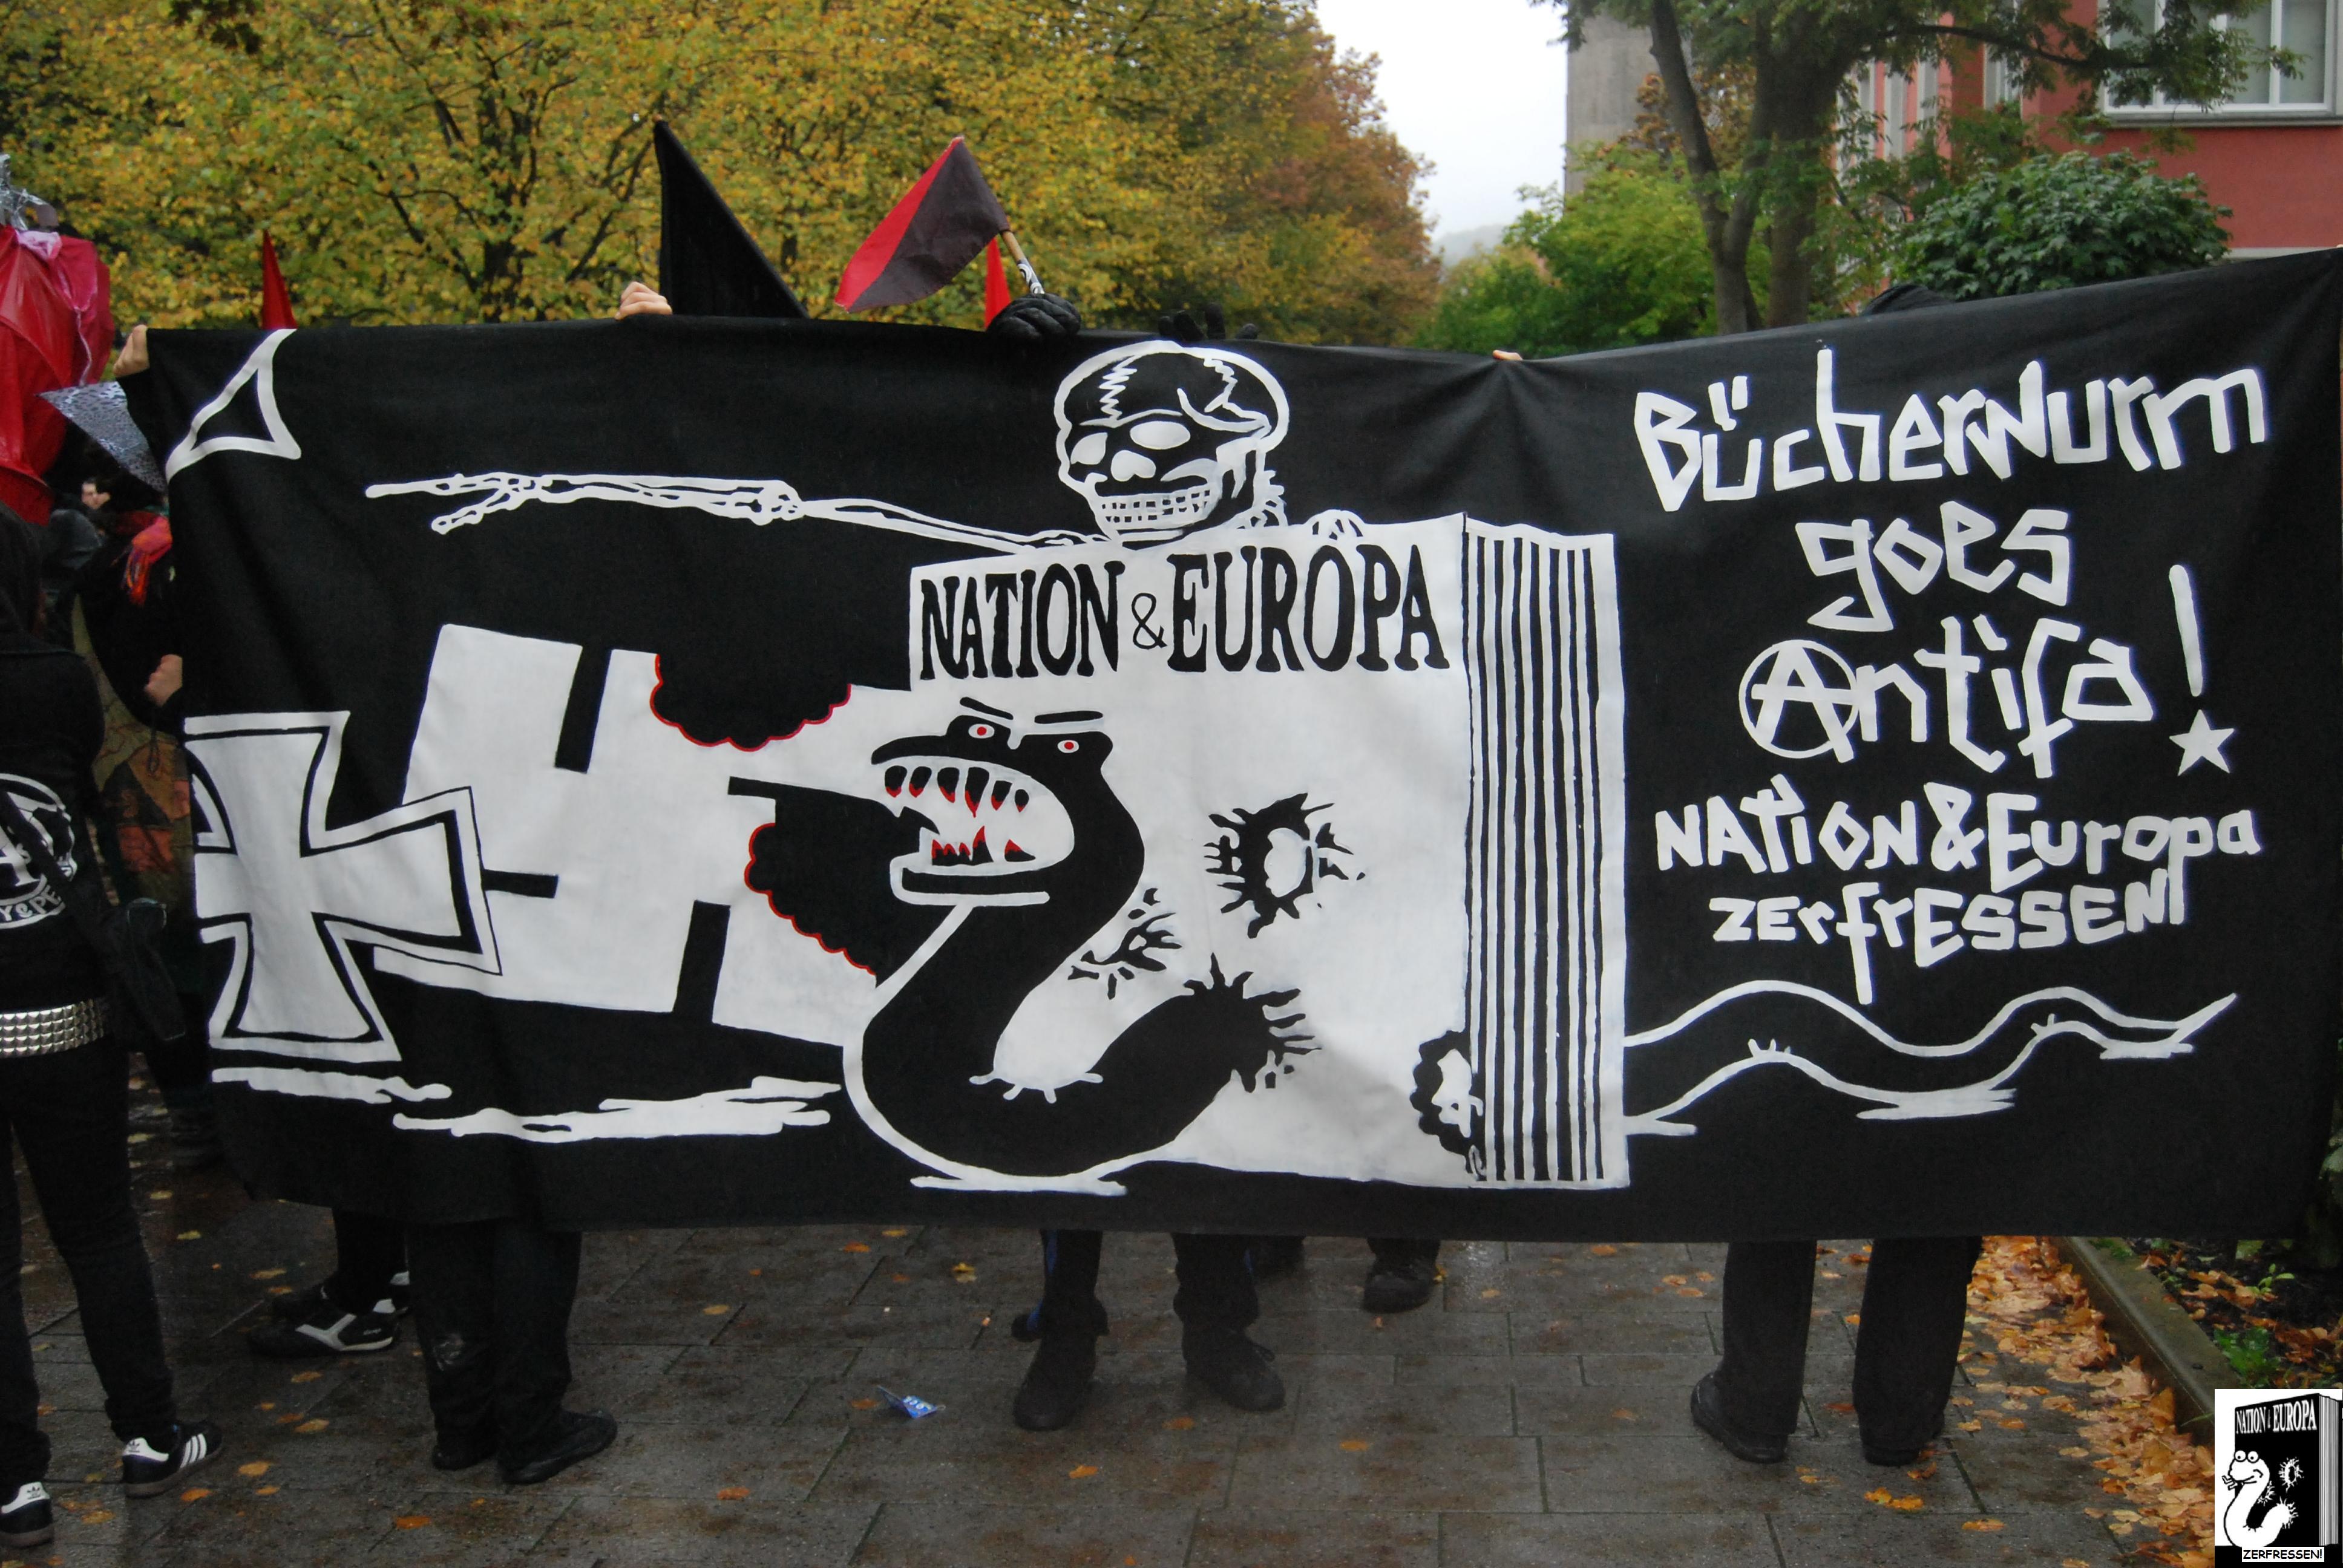 NATION & EUROPA
Bücherwurm
goes
Antifa!
NATiON & Europa
zerfrESSEN!
NATION & EUROPA
ZERFRESSEN!